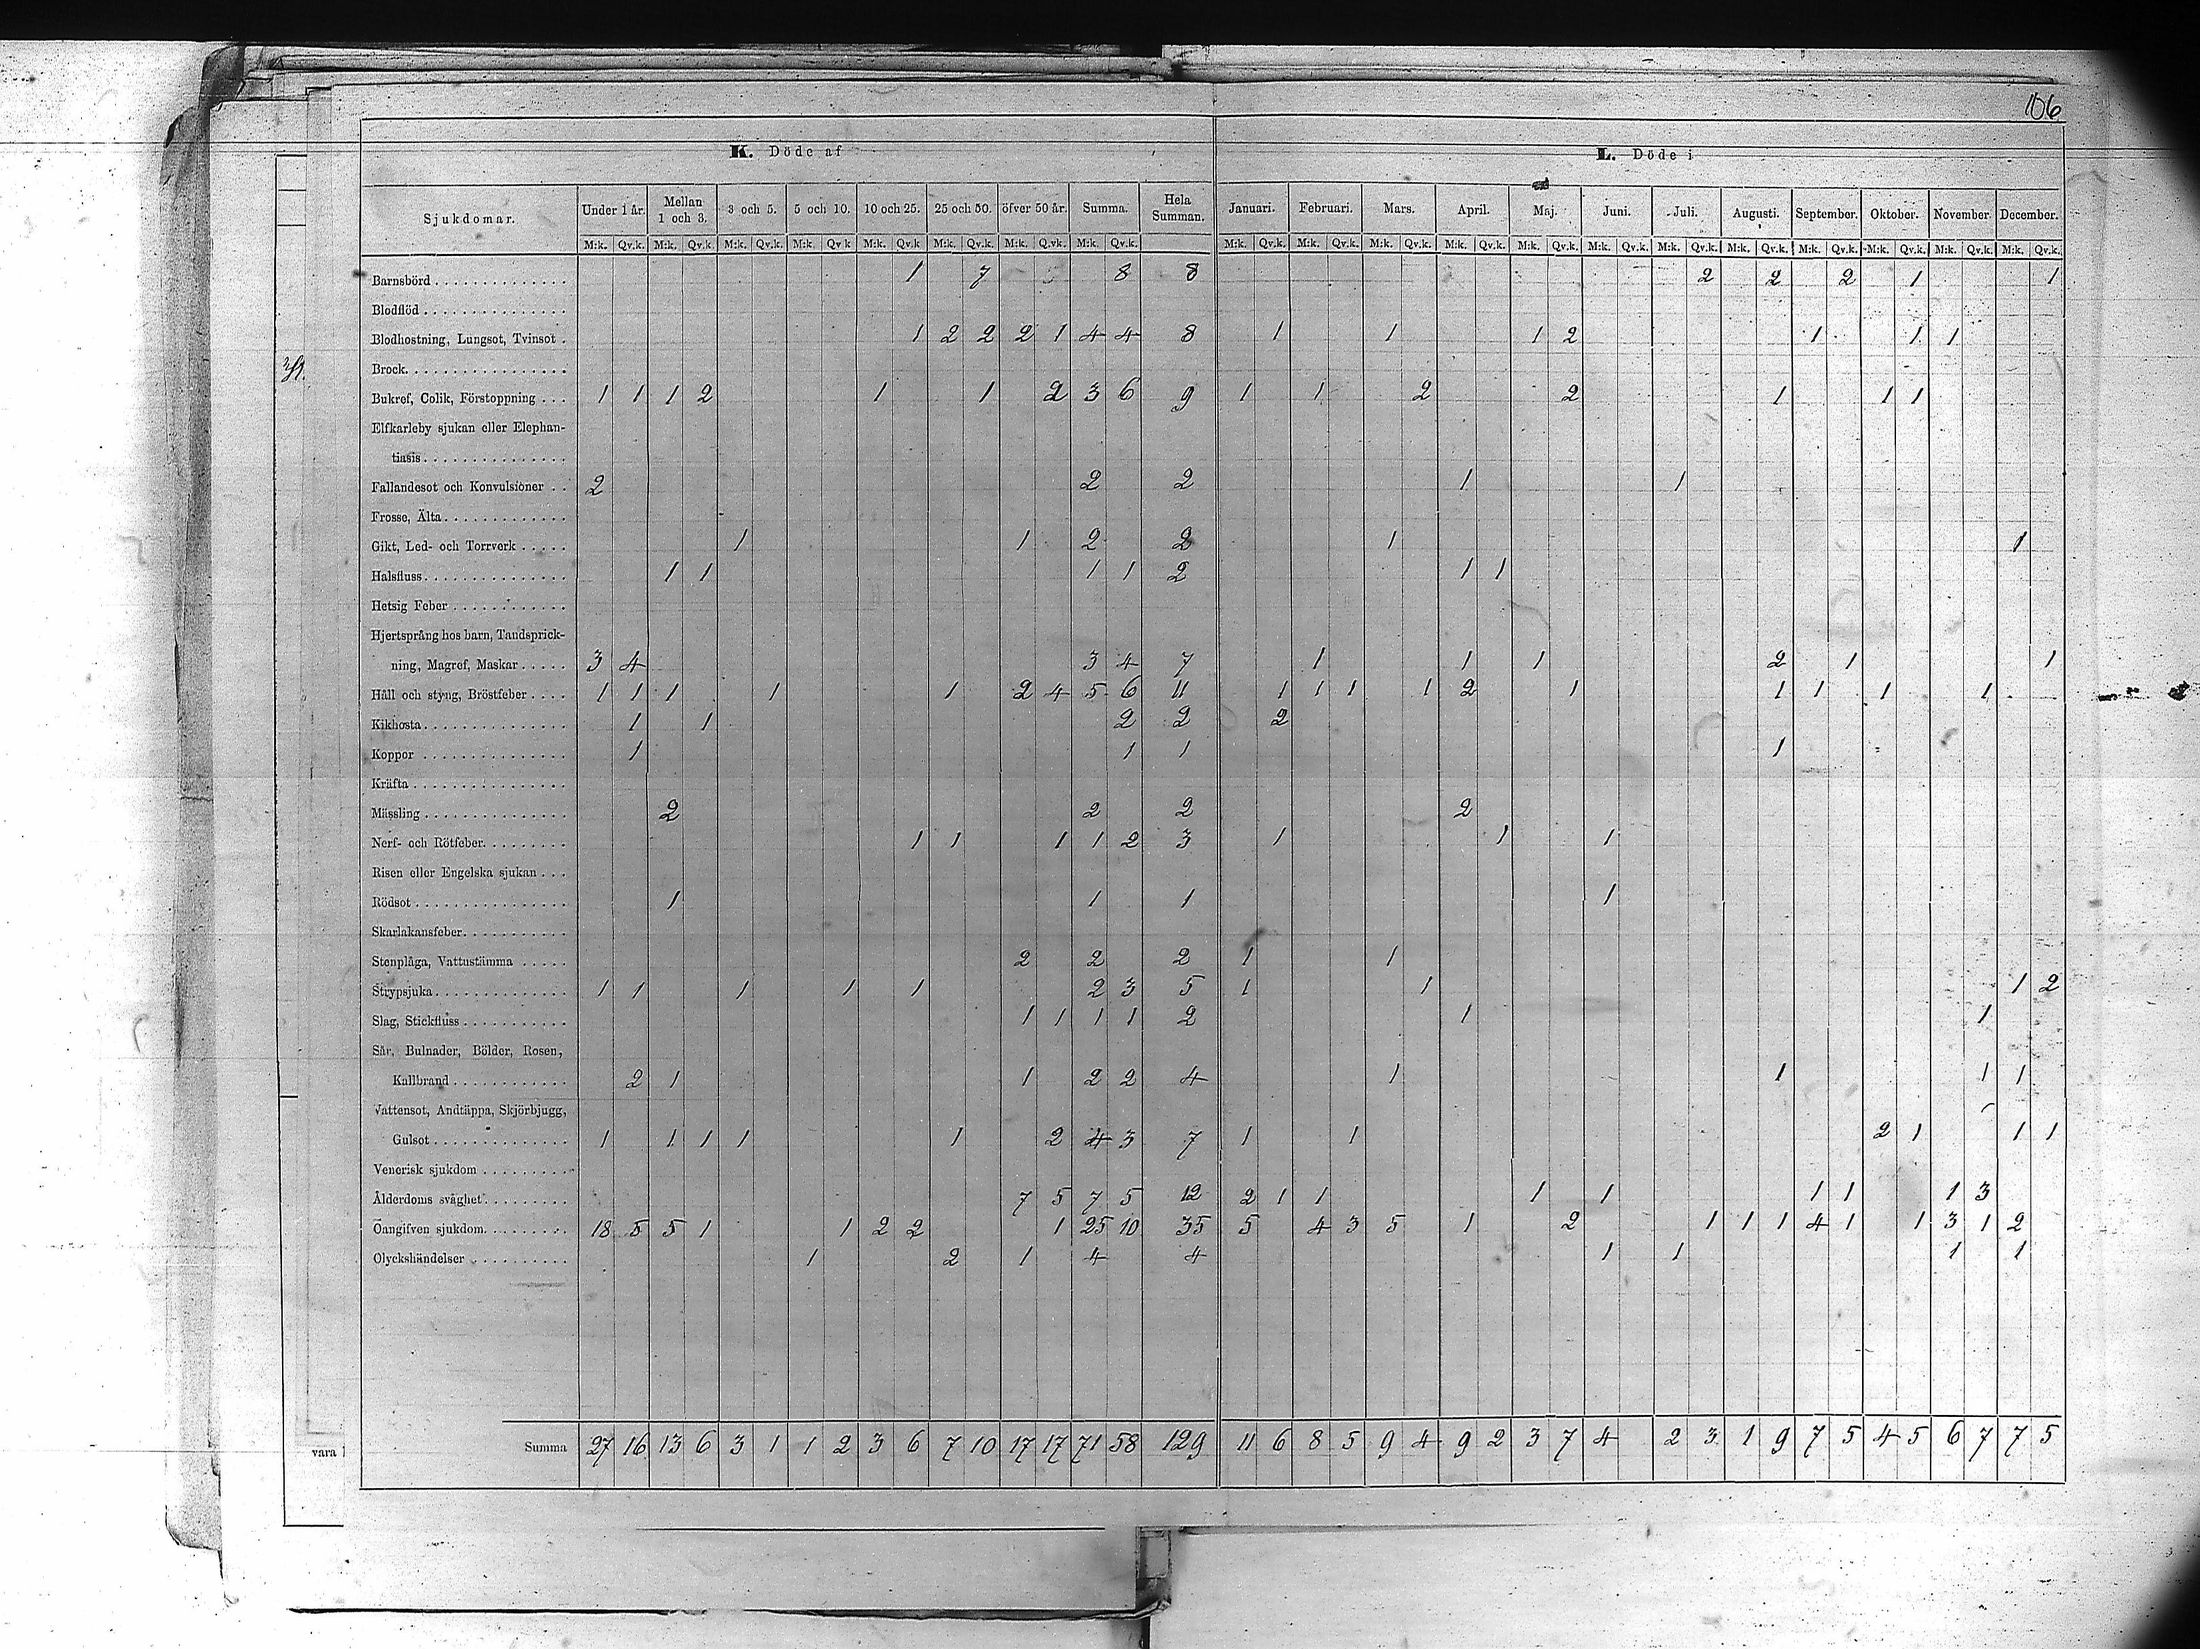 106
K. Döde af
L. Döde i
Sjukdomar. Under 1 år. Mellan 1 och 3. 3 och 5. 5 och 10. 10 och 25. 25 och 50. öfver 50 år. Summa. Hela Summan. Januari. Februari. Mars. April. Maj. Juni. Juli. Augusti. September. Oktober. November. December.
M:k. Qv.k. M:k. Qv.k. M:k. Qv.k. M:k. Qv.k M:k. Qv.k M:k. Qv.k. M:k. Q.vk. M:k. Qv.k. M:k. Qv.k. M:k. Qv.k. M:k. Qv.k. M:k. Qv.k. M:k. Qv.k. M:k. Qv.k. M:k. Qv.k. M:k. Qv.k. M:k. Qv.k. M:k. Qv.k. M:k. Qv.k. M:k. Qv.k.
Barnsbörd 1 7 8 8 2 2 2 1 1
Blodflöd
Blodhostning, Lungsot, Tvinsot 1 2 2 2 1 4 4 8 1 1 1 2 1 1 1
Brock
Bukref, Colik, Förstoppning 1 1 1 2 1 1 2 3 6 9 1 1 2 2 1 1 1
Elfkarleby sjukan eller Elephan-
tiasis
Fallandesot och Konvulsioner 2 2 2 1 1
Frosse, Älta
Gikt, Led- och Torrverk 1 1 2 2 1 1
Halsfluss 1 1 1 1 2 1 1
Hetsig Feber
Hjertsprång hos barn, Tandsprick-
ning, Magref, Maskar 3 4 3 4 7 1 1 1 2 1 1
Håll och styng, Bröstfeber 1 1 1 1 1 2 4 5 6 11 1 1 1 1 2 1 1 1 1 1
Kikhosta 1 1 2 2 2
Koppor 1 1 1 1
Kräfta
Mässling 2 2 2 2
Nerf- och Rötfeber 1 1 1 1 2 3 1 1 1
Risen eller Engelska sjukan
Rödsot 1 1 1 1
Skarlakansfeber
Stenplåga, Vattustämma 2 2 2 1 1
Strypsjuka 1 1 1 1 1 2 3 5 1 1 1 2
Slag, Stickfluss 1 1 1 1 2 1 1
Sår, Bulnader, Bölder, Rosen,
Kallbrand 2 1 1 2 2 4 1 1 1 1
Vattensot, Andtäppa, Skjörbjugg,
Gulsot 1 1 1 1 1 2 4 3 7 1 1 2 1 1 1
Venerisk sjukdom
Ålderdoms svåghet 7 5 7 5 12 2 1 1 1 1 1 1 1 3
Oangifven sjukdom 18 5 5 1 1 2 2 1 25 10 35 5 4 3 5 1 2 1 1 1 4 1 1 3 1 2
Olyckshändelser 1 2 1 4 4 1 1 1 1
Summa 27 16 13 6 3 1 1 2 3 6 7 10 17 17 71 58 129 11 6 8 5 9 4 9 2 3 7 4 2 3 1 9 7 5 4 5 6 7 7 5
vara